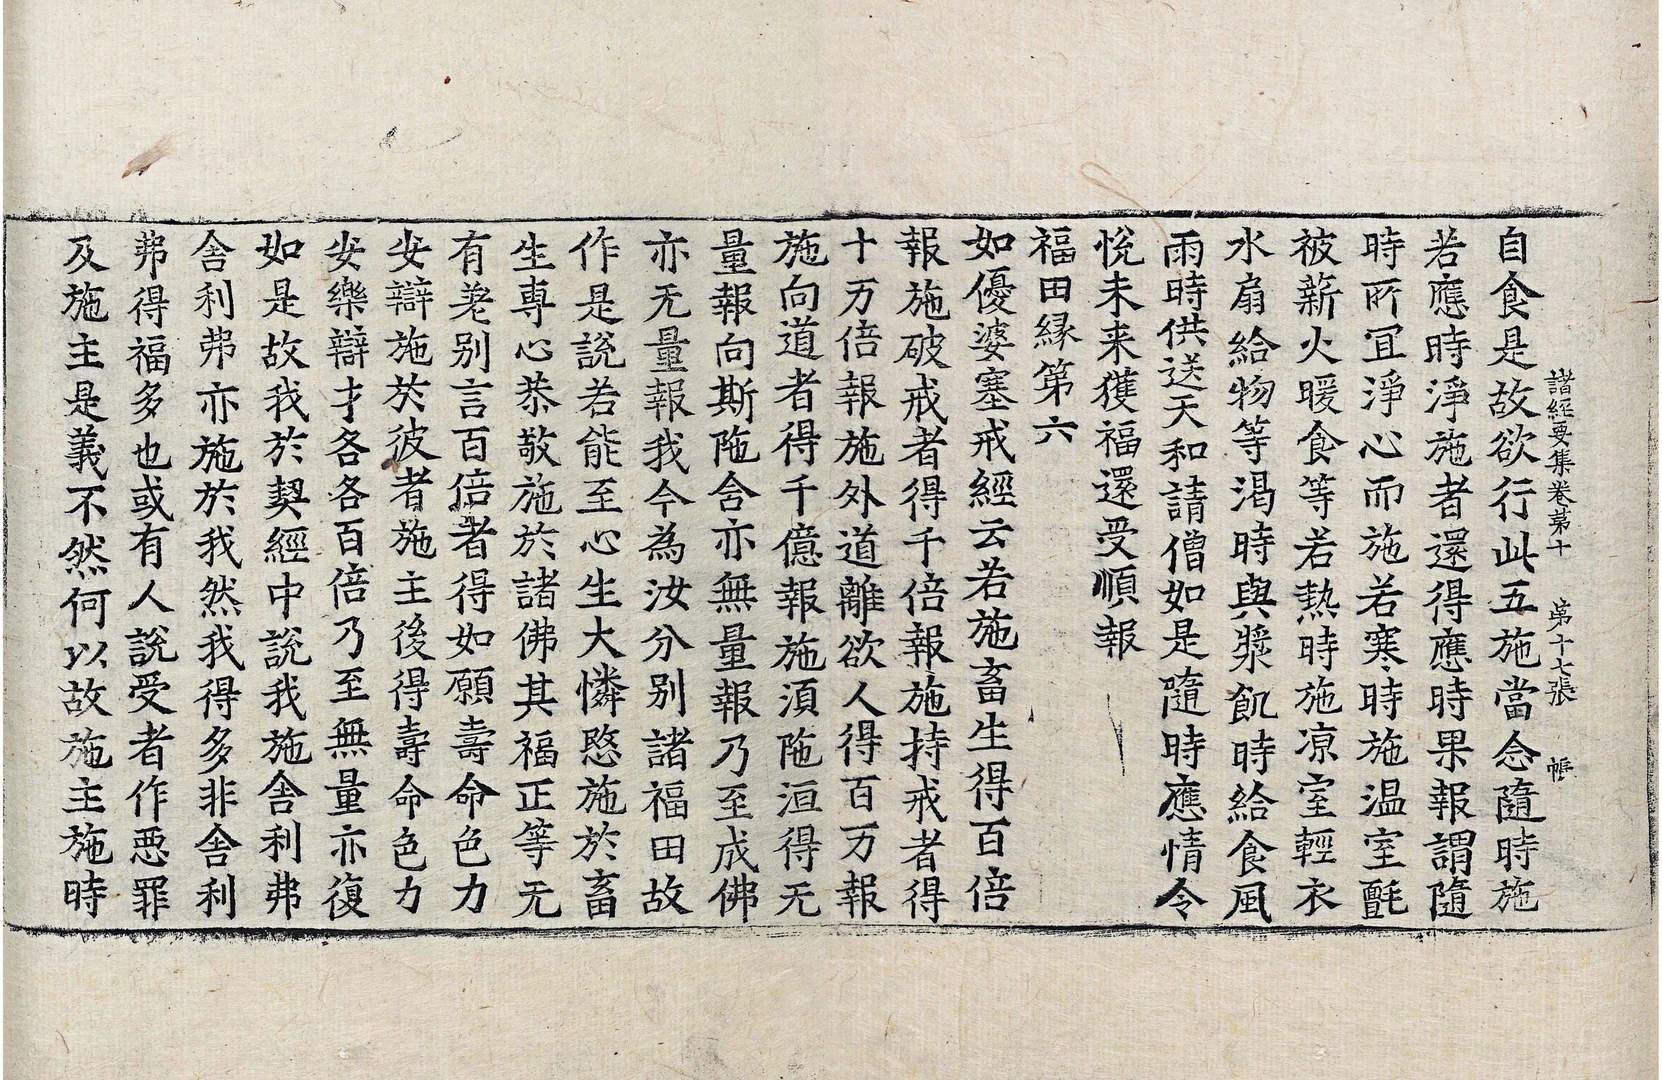 諸經要集卷苐十　苐十七張　帳
自食是故欲行此五施當念隨時施
若應時淨施者還得應時果報謂隨
時所冝淨心而施若寒時施温室氈
被薪火暖食等若熱時施凉室輕衣
水扇給物等渴時與漿飢時給食風
雨時供送天和請僧如是隨時應情令
悅未来獲福還受順報
福田縁第六
如優婆塞戒經云若施畜生得百倍
報施破戒者得千倍報施持戒者得
十万倍報施外道離欲人得百万報
施向道者得千億報施湏陁洹得无
量報向斯陁含亦無量報乃至成佛
亦无量報我今為汝分别諸福田故
作是說若能至心生大憐愍施於畜
生專心恭敬施於諸佛其福正等无
有差别言百倍者得如願壽命色力
安辯施於彼者施主後得壽命色力
安樂辯才各各百倍乃至無量亦復
如是故我於契經中說我施舍利弗
舍利弗亦施於我然我得多非舍利
弗得福多也或有人說受者作悪罪
及施主是義不然何以故施主施時